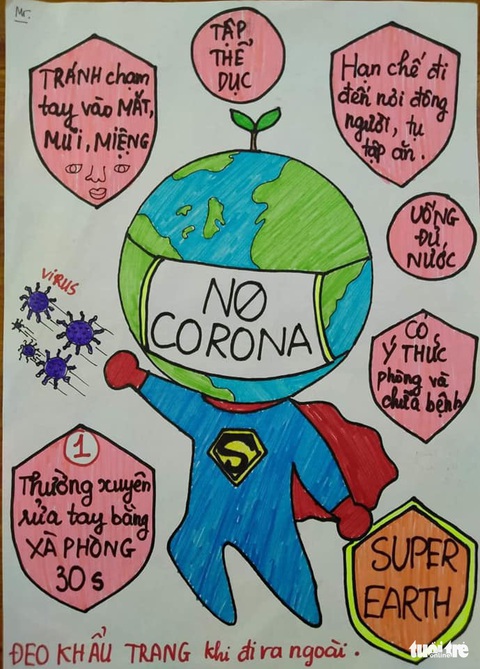 Mr.
TẬP
THỂ
DỤC
TRÁNH chạm
tay vào MẮT,
MŨI, MIỆNG
Hạn chế đi
đến nơi đông
người, tụ
tập ăn.
UỐNG
ĐỦ
NƯỚC
VIRUS
NO
CORONA
CÓ
Ý THỨC
phòng và
chữa bệnh
1
Thường xuyên
rửa tay bằng
XÀ PHÒNG
30s
S
SUPER
EARTH
ĐEO KHẨU TRANG khi đi ra ngoài.
tuổi trẻ